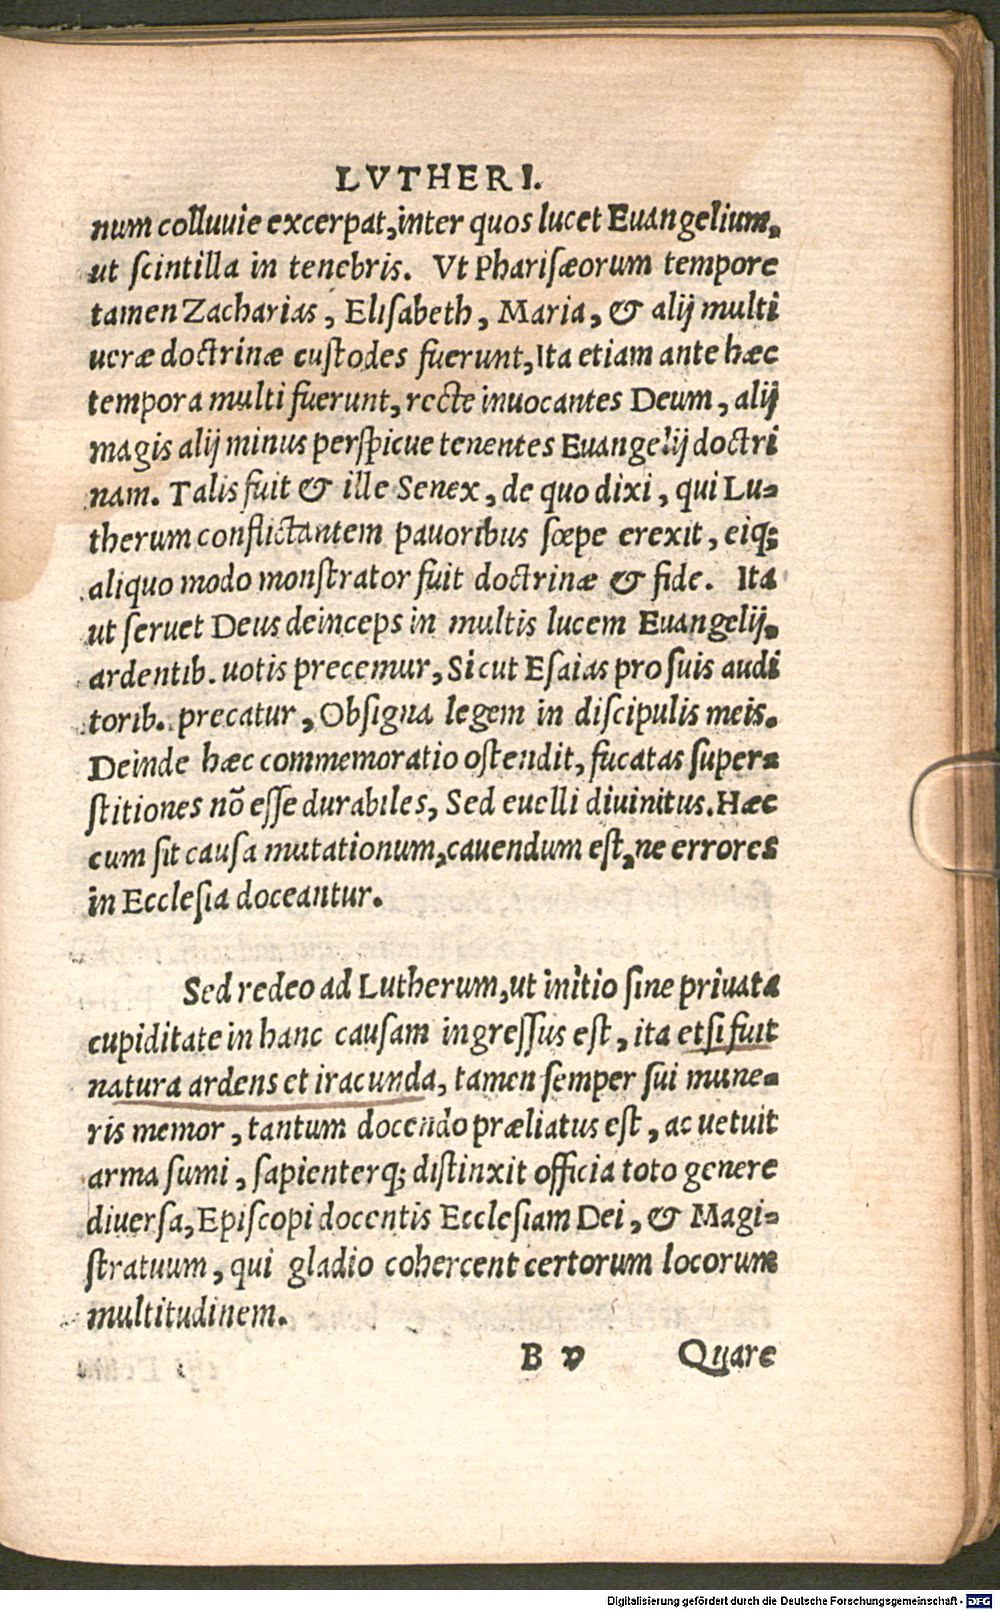 LVTHERI.
num colluuie excerpat, inter quos lucet Euangelium,
ut scintilla in tenebris. Vt Pharisæorum tempore
tamen Zacharias, Elisabeth, Maria, & alij multi
ueræ doctrinæ custodes fuerunt, Ita etiam ante hæc
tempora multi fuerunt, recte inuocantes Deum, alij
magis alij minus perspicue tenentes Euangelij doctri
nam. Talis fuit & ille Senex, de quo dixi, qui Lu-
therum conflictantem pauoribus sœpe erexit, eiq;
aliquo modo monstrator fuit doctrinæ & fide. Ita
ut seruet Deus deinceps in multis lucem Euangelij,
ardentib. uotis precemur, Sicut Esaias pro suis audi
torib. precatur, Obsigna legem in discipulis meis.
Deinde hæc commemoratio ostendit, fucatas super-
stitiones nō esse durabiles, Sed euelli diuinitus. Hæc
cum sit causa mutationum, cauendum est, ne errores
in Ecclesia doceantur.
Sed redeo ad Lutherum, ut initio sine priuata
cupiditate in hanc causam ingressus est, ita etsi fuit
natura ardens et iracunda, tamen semper sui mune-
ris memor, tantum docendo præliatus est, ac uetuit
arma sumi, sapienterq; distinxit officia toto genere
diuersa, Episcopi docentis Ecclesiam Dei, & Magi-
stratuum, qui gladio cohercent certorum locorum
multitudinem.
B v Quare
Digitalisierung gefördert durch die Deutsche Forschungsgemeinschaft - DFG